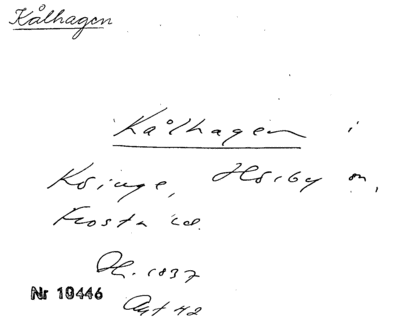 Kålhagen
Kålhagen i
Kösinge, Hörby sn,
Frosta hd.
Dh. 1837
Nr 10446
Akt 42